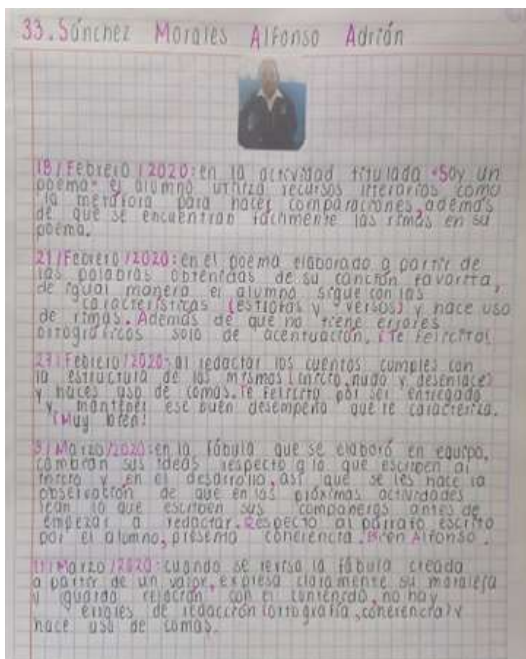 33. Sánchez Morales Alfonso Adrián
18/Febrero/2020: en la actividad titulada "Soy un
poema" el alumno utiliza recursos literarios como
la metáfora para hacer comparaciones, además
de que se encuentran fácilmente las rimas en su
poema.
21/Febrero/2020: en el poema elaborado a partir de
las palabras obtenidas de su canción favorita,
de igual manera el alumno sigue con las
características (estrofas y versos) y hace uso
de rimas. Además de que no tiene errores
ortográficos solo de acentuación. ¡Te felicito!
23/Febrero/2020: al redactar los cuentos cumples con
la estructura de los mismos (inicio, nudo y desenlace)
y haces uso de comas. Te felicito por ser entregado
y mantener ese buen desempeño que te caracteriza.
¡Muy bien!
3/Marzo/2020: en la fábula que se elaboró en equipo,
cambian sus ideas respecto a lo que escriben al
inicio y en el desarrollo, así que se les hace la
observación de que en las próximas actividades
lean lo que escriben sus compañeros antes de
empezar a redactar. Respecto al párrafo escrito
por el alumno, presenta coherencia. Bien Alfonso.
11/Marzo/2020: cuando se revisa la fábula creada
a partir de un valor, expresa claramente su moraleja
y guarda relación con el contenido, no hay
errores de redacción (ortografía, coherencia) y
hace uso de comas.